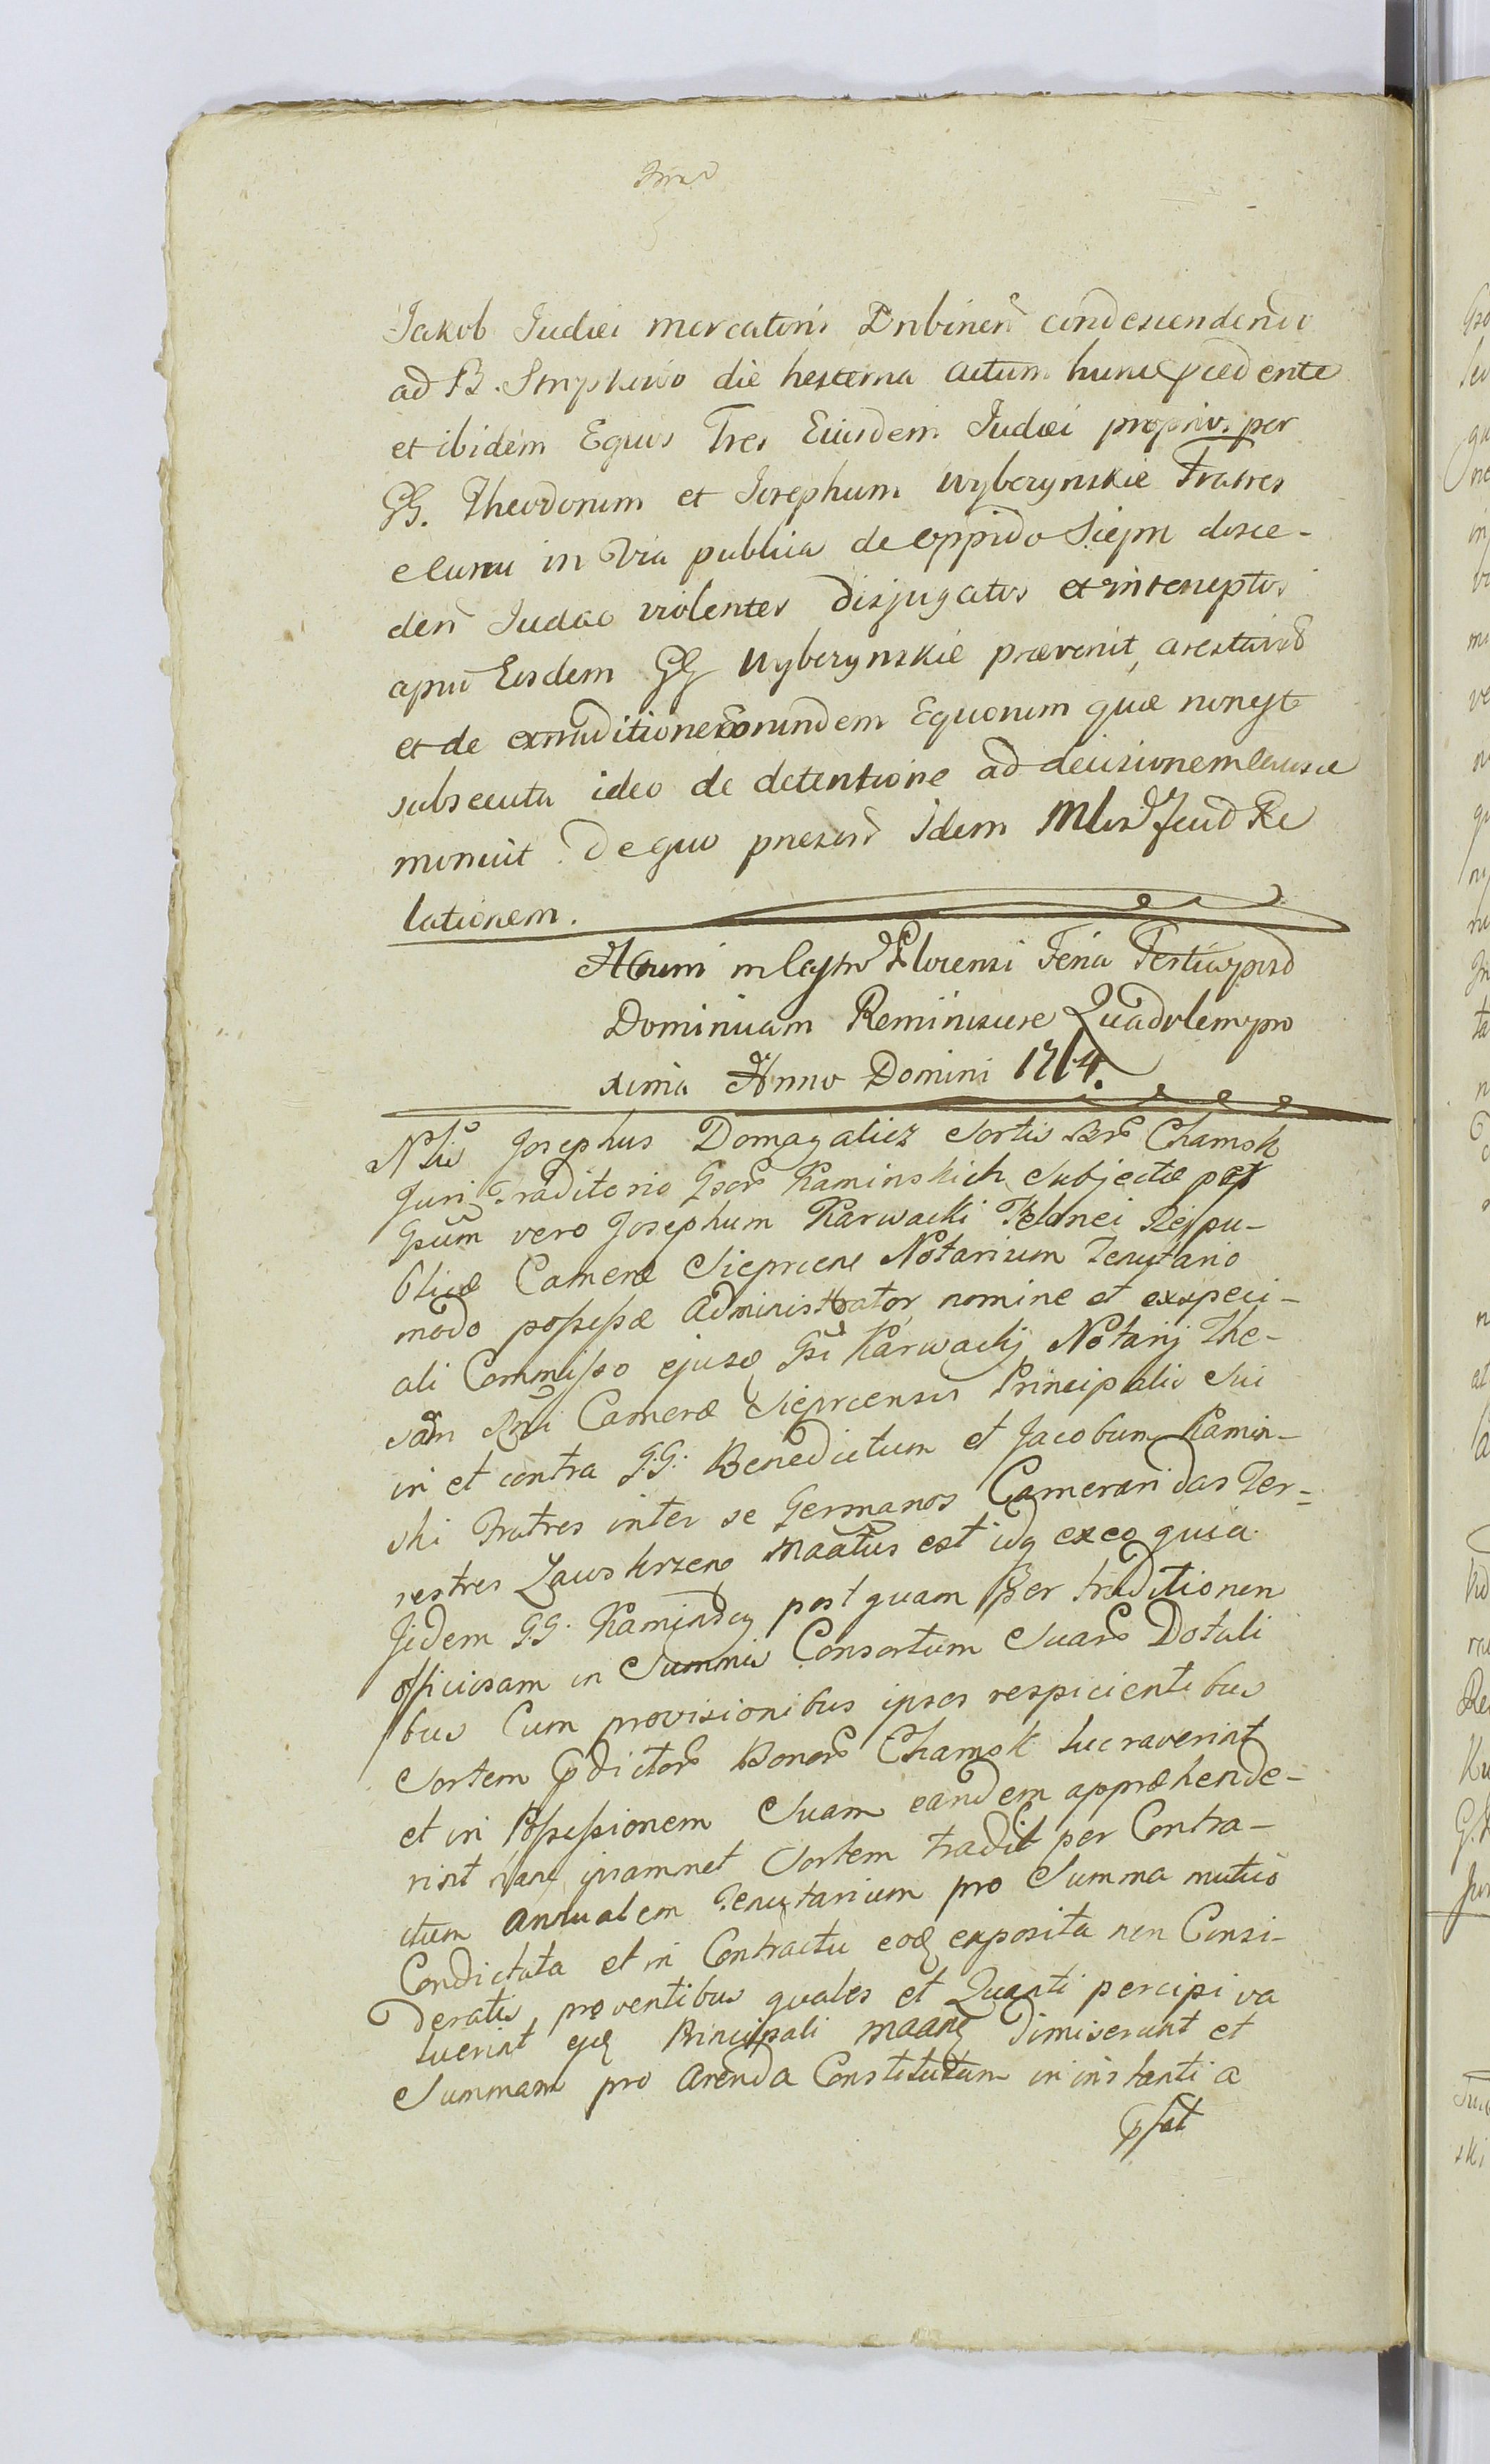 Jakob Judæi mercatoris Dubinen condescenden
ad B. Strzykiwo die hesterna actum hunc pcedente
et ibidem Equos Tres Eiusdem Judæi proprios per
GG. Theodorum et Josephum Wyberynskie Fratres
e curru in Via publica de oppido Siepr disce-
den Judæo violenter disjugatos et interceptos
apud Eosdem GG Wyberynskie prævenit, arestavit
et de extraditione Eorundem Equorum quæ non est
subsecuta ideo de detentione ad decisionem causæ
monuit. De quo præsens Idem Mlis fecit Re
lationem.
Actum in Castro Plocensi Feria Tertia post
Dominicam Reminiscere Quadrlem pro
xima Anno Domini 1764.
Nblis Josephus Domagalicz Sortis Bor Chamsk
Juri Traditorio Gsor Kaminskich Subjectæ per
Gsum vero Josephum Karwacki Telonei Reipu-
blicæ Cameræ Sieprcens Notarium Tenutario
modo possessæ Administrator, nomine et ex speci-
ali Commisso ejusq Gsi Karwackij Notarij The-
Cameræ Sieprcensis Principalis Sui
in et contra G:G: Benedictum et Jacobum Kamin-
ski Fratres inter se Germanos Cameraridas Ter-
restres Zawskrzens Maatus est idq ex eo quia
Jidem G:G. Kaminscy postquam per traditionem
officiosam in Summis Consortum Suar Dotali
bus Cum provisionibus ipsos respicientibus
Sortem pdictor Bonor Chamsk lucraverint
et in Possessionem Suam eandem appræhende-
rint ipsammet Sortem tradit per Contra-
ctum Annualem Tenutarium pro Summa mutuo
Condictata et in Contractu eoq exposita non Consi-
deratis proventibus quales et Quanti percipi va
luerint Principali Dimiserunt et
Summam pro arenda Constitutam in instanti a
psat